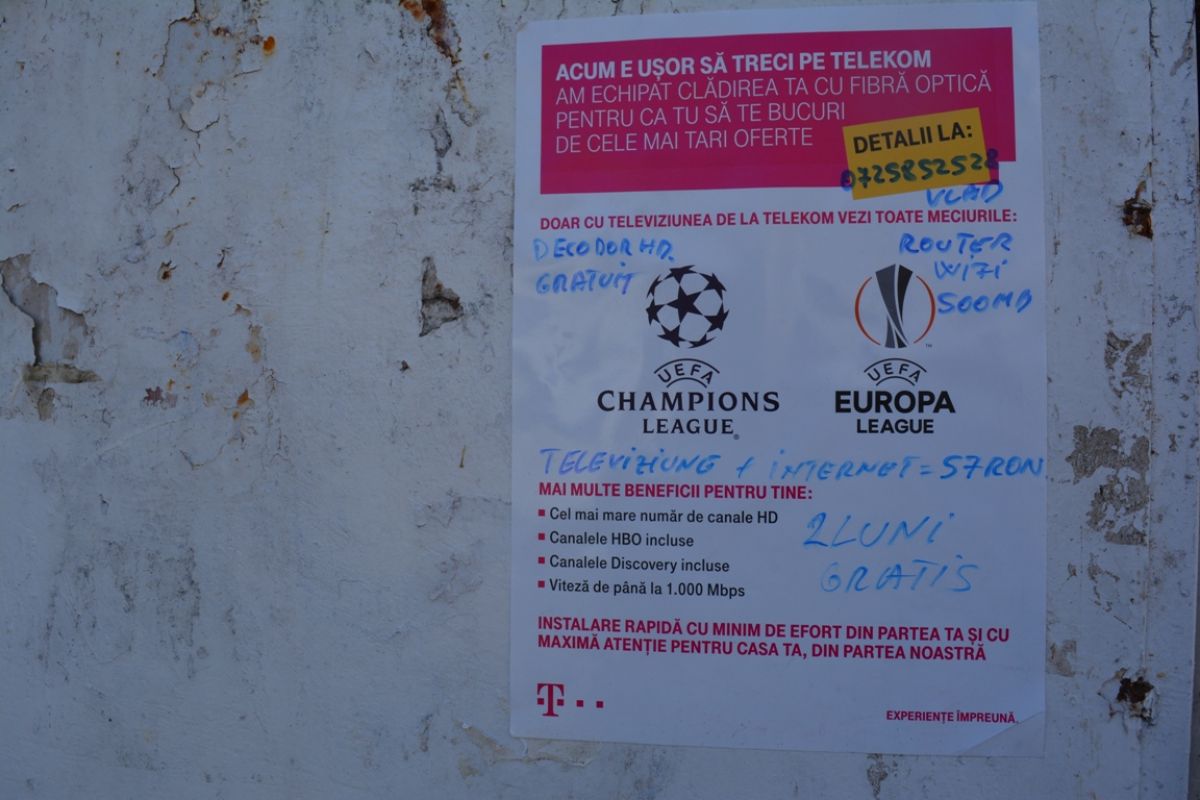 ACUM E UȘOR SĂ TRECI PE TELEKOM
AM ECHIPAT CLĂDIREA TA CU FIBRĂ OPTICĂ
PENTRU CA TU SĂ TE BUCURI
DE CELE MAI TARI OFERTE
DETALII LA:
0725852528
VLAD
DOAR CU TELEVIZIUNEA DE LA TELEKOM VEZI TOATE MECIURILE:
DECODOR HD.
GRATUIT
ROUTER
WIFI
500MB
UEFA
CHAMPIONS
LEAGUE®
UEFA
EUROPA
LEAGUE
™
TELEVIZIUNE + INTERNET = 57RON
MAI MULTE BENEFICII PENTRU TINE:
Cel mai mare număr de canale HD
Canalele HBO incluse
Canalele Discovery incluse
Viteză de până la 1.000 Mbps
2 LUNI
GRATIS
INSTALARE RAPIDĂ CU MINIM DE EFORT DIN PARTEA TA ȘI CU
MAXIMĂ ATENȚIE PENTRU CASA TA, DIN PARTEA NOASTRĂ
T
EXPERIENȚE ÎMPREUNĂ.